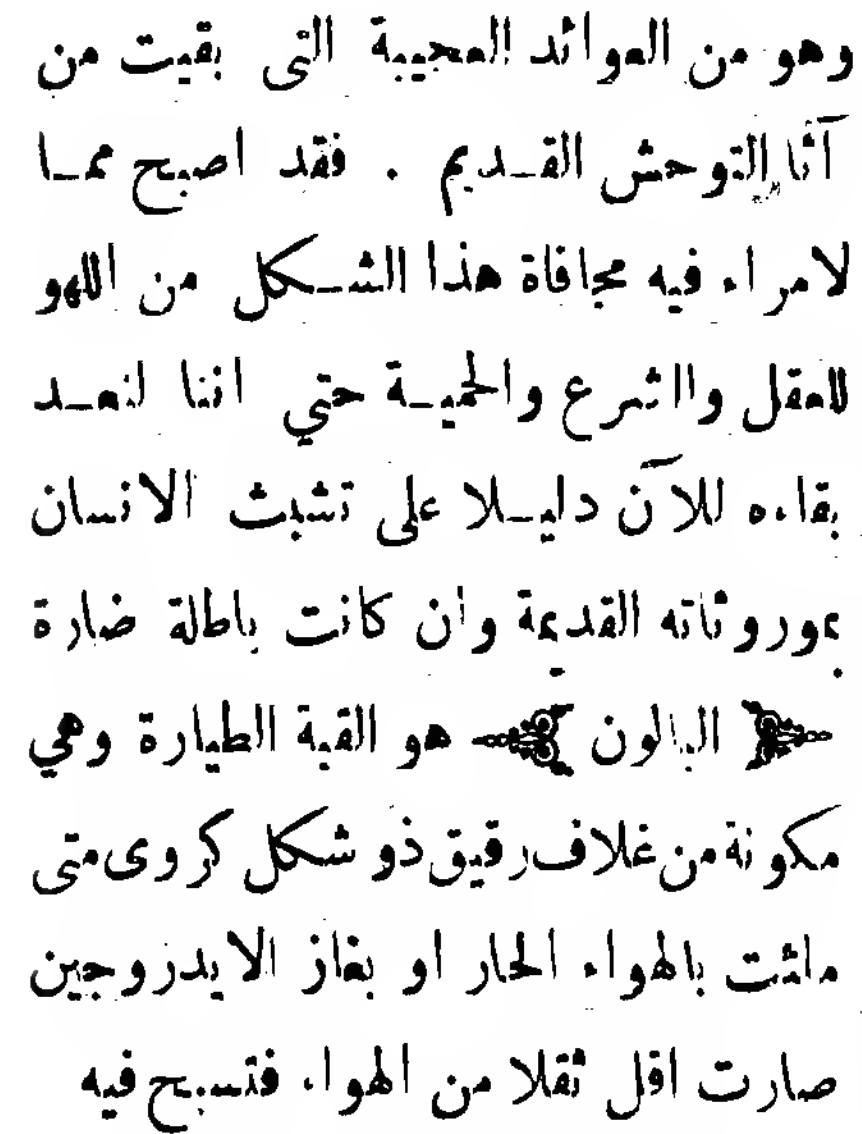 وهو من العوائد العجيبة التى بقيت من
آثا التوحش القديم . فقد اصبح مما
لامراء فيه مجافاة هذا الشكل من اللهو
للعقل والشرع والحمية حتي اننا لنعد
بقاءه للآن دليلا على تشبث الانسان
بموروثاته القديمة وان كانت باطلة ضارة
﴿ البالون ﴾ هو القبة الطيارة وهي
مكونة من غلاف رقيق ذو شكل كروى متى
ملئت بالهواء الحار او بغاز الايدروجين
صارت اقل ثقلا من الهواء فتسبح فيه